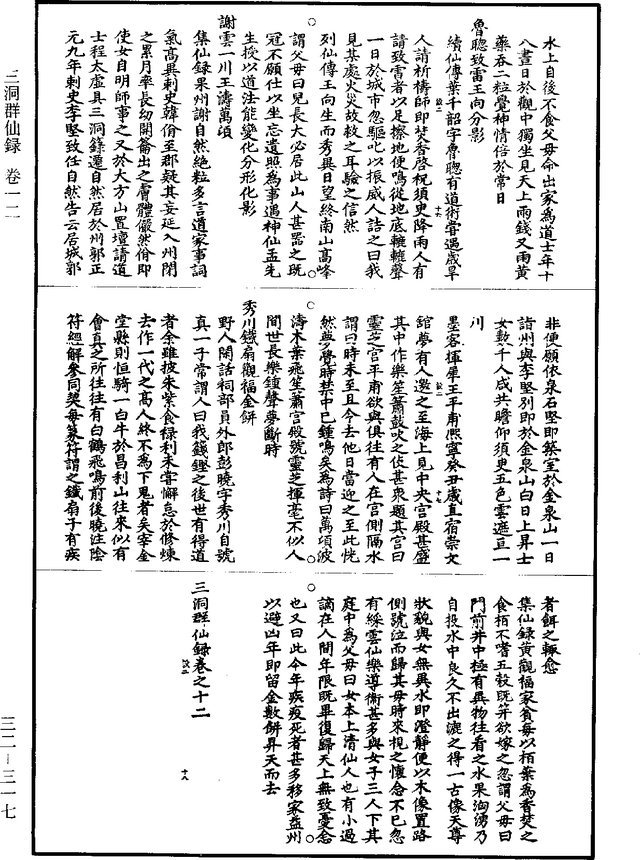 水上自後不食父母命出家為道士年十
八晝日於觀中獨坐見天上雨錢又雨黃
藥吞二粒覺神情倍於常日
魯聰致雷王向分影
續仙傳葉千韶字魯聰有道術嘗遇歲旱
人請祈禱師即焚香啓祝須臾降雨人有
請致雷者以足擦地便鳴從地底轆轆聲
一日於城市忽驅叱以振威人詰之曰我
見某處火災故救之耳驗之信然
列仙傳王向生而秀異日望終南山高峰
謂父母曰兒長大必居此山人甚器之既
冠不願仕以坐忘遺照為事遇神仙孟先
生授以道法能變化分形化影
謝雲一川王濤萬頃
集仙録果州謝自然絶粒多言道家事詞
氣高異刺史韓佾至郡疑其妄延入州閉
之累月率長幼開鑰出之膚體儼然佾即
使女自明師事之又於大方山置壇請道
士程太虛具三洞籙遷自然居於州郭正
元九年刺史李堅致任自然告云居城郭
非便願依泉石堅即築室於金泉山一日
詣州與李堅別即於金泉山白日上昇士
女數千人咸共瞻仰須臾五色雲遮亘一
川
墨客揮犀王平甫熙寧癸丑歲直宿崇文
舘夢有人邀之至海上見中央宮殿甚盛
其中作樂笙簫鼓吹之伎甚衆題其宮曰
靈芝宮平甫欲與俱往有人在宮側隔水
謂曰時未至且令去他日當迎之至此恍
然夢啓時禁中已鍾鳴矣為詩曰萬頃波
濤木葉飛笙簫宮殿號靈芝揮毫不似人
間世長樂鍾聲夢斷時
秀川鐵扇觀福金餅
野人閑話祠部員外郎彭曉字秀川自號
真一子常謂人曰我籛鏗之後世有得道
者余雖披朱紫食祿利未嘗懈怠於修煉
去作一代之高人終不為下鬼者矣宰金
堂縣則恒騎一白牛於昌利山往來似有
會真之所往往有白鶴飛鳴前後曉注陰
符經解參同契每篆符謂之鐵扇子有疾
者餌之輙愈
集仙録黃觀福家貧每以栢葉為香焚之
食栢不嗜五穀既笄欲嫁之忽謂父母曰
門前井中極有異物往看之水果洶湧乃
自投水中良久不出漉之得一古像天尊
狀貌與女無異水即澄靜便以木像置路
側號泣而歸其母時來視之懷念不已忽
有綵雲仙樂導衞甚多與女子三人下其
庭中為父母曰女本上清仙人也有小過
謫在人間年限既畢復歸天上無致憂念
也又曰此今年疾疫死者甚多移家益州
以避凶年即留金數餅昇天而去
三洞群仙録卷之十二
三洞群仙録 卷一二
三二—三一七